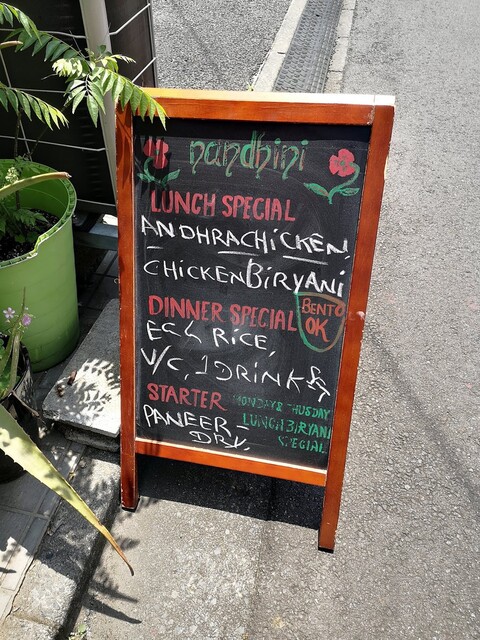 nandhini
LUNCH SPECIAL
ANDHRA CHICKEN,
CHICKEN BIRYANI
DINNER SPECIAL
BENTO
OK
EGG RICE,
V/C, 1 DRINK &
STARTER
PANEER -
DRY.
MONDAY & THUSDAY
LUNCH BIRYANI
SPECIAL